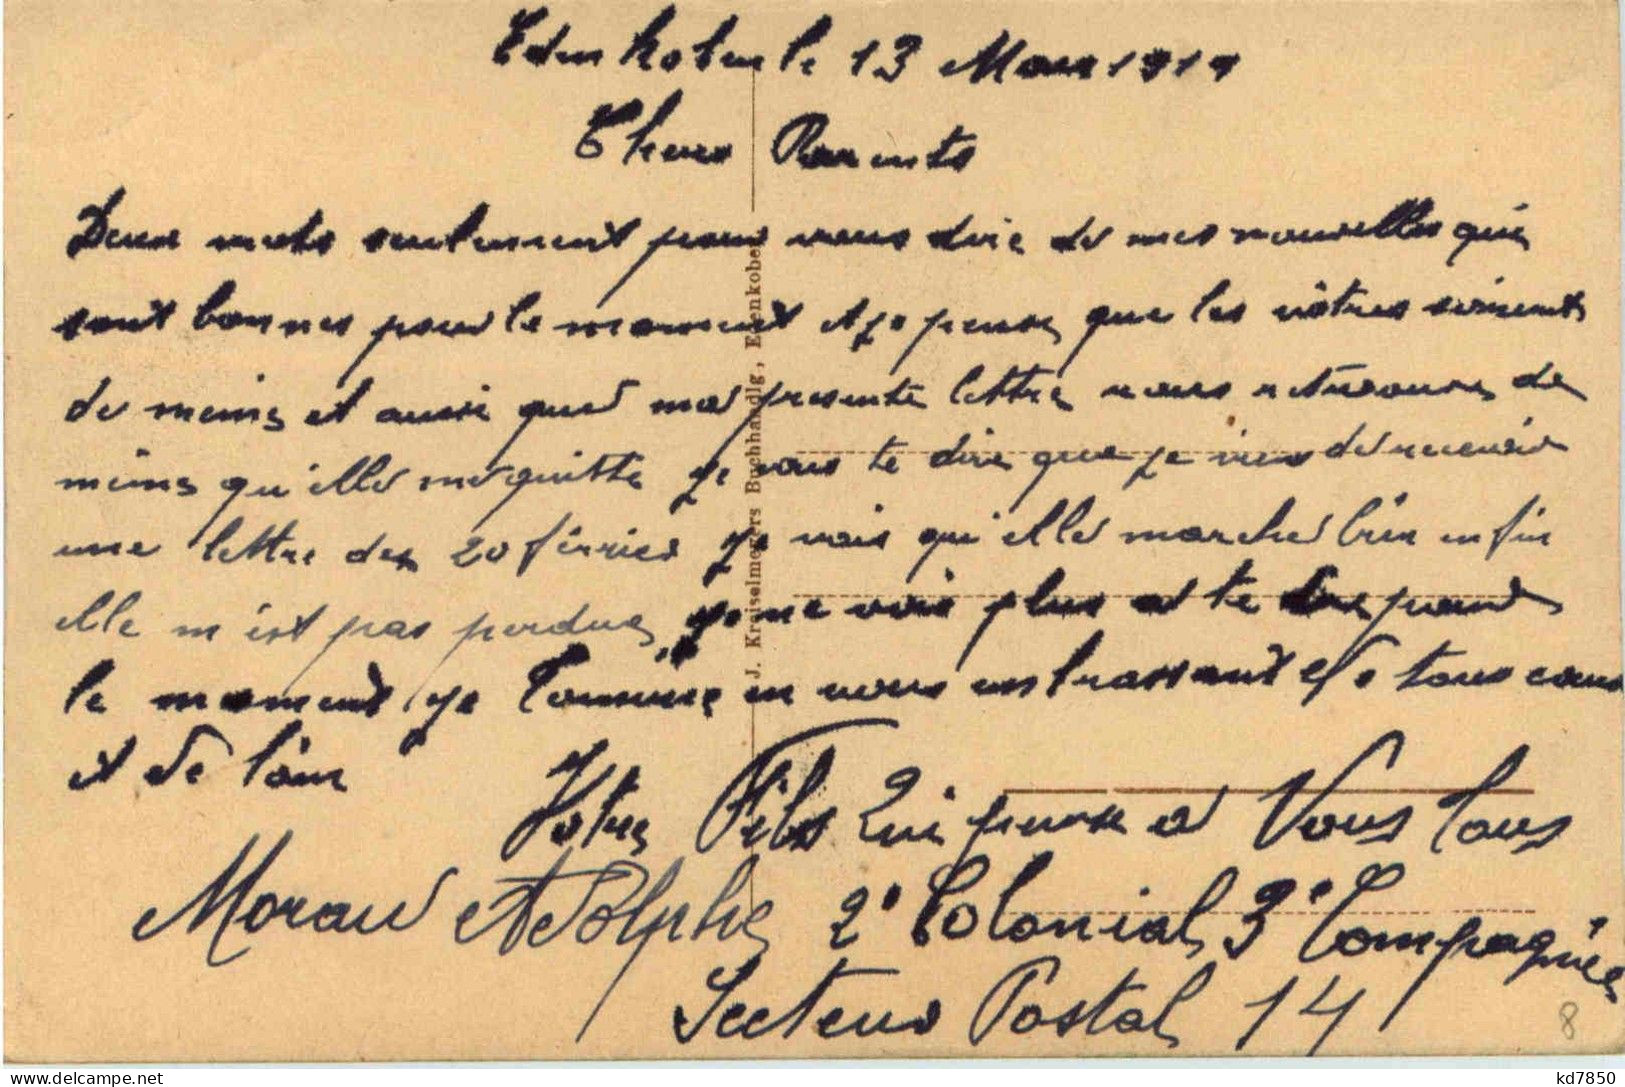 Edenkoben le 13 Mars 1919
Chers Parents
Deux mots seulement pour vous dire de mes nouvelles qui
sont bonnes pour le moment et je pense que les vôtres soient
de meme et aussi que ma presente lettre vous retrouve de
meme qu'elle me quitte je vais te dire que je viens de recevoir
une lettre du 20 février je vois qu'elle marche bien enfin
elle n'est pas perdue je ne vois plus a te dire pour
le moment je termine en vous embrassant tous
et de loin
Votre Fils Qui pense a Vous tous
Morau Adolphe 2e Colonial 3e Compagnie
Secteur Postal 14
J. Kreiselmeyers Buchhandlg, Edenkoben
8
kd7850